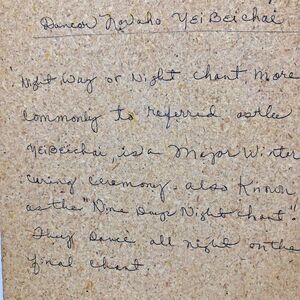 Dancer Navaho YEiBEichai
Night Way or Night chant More
Commonly to referred as the
YEiBEichai, is a Major Winter
curing ceremony. also Known
as the "Nine Days Night chant".
They Dance all night on the
final chant.